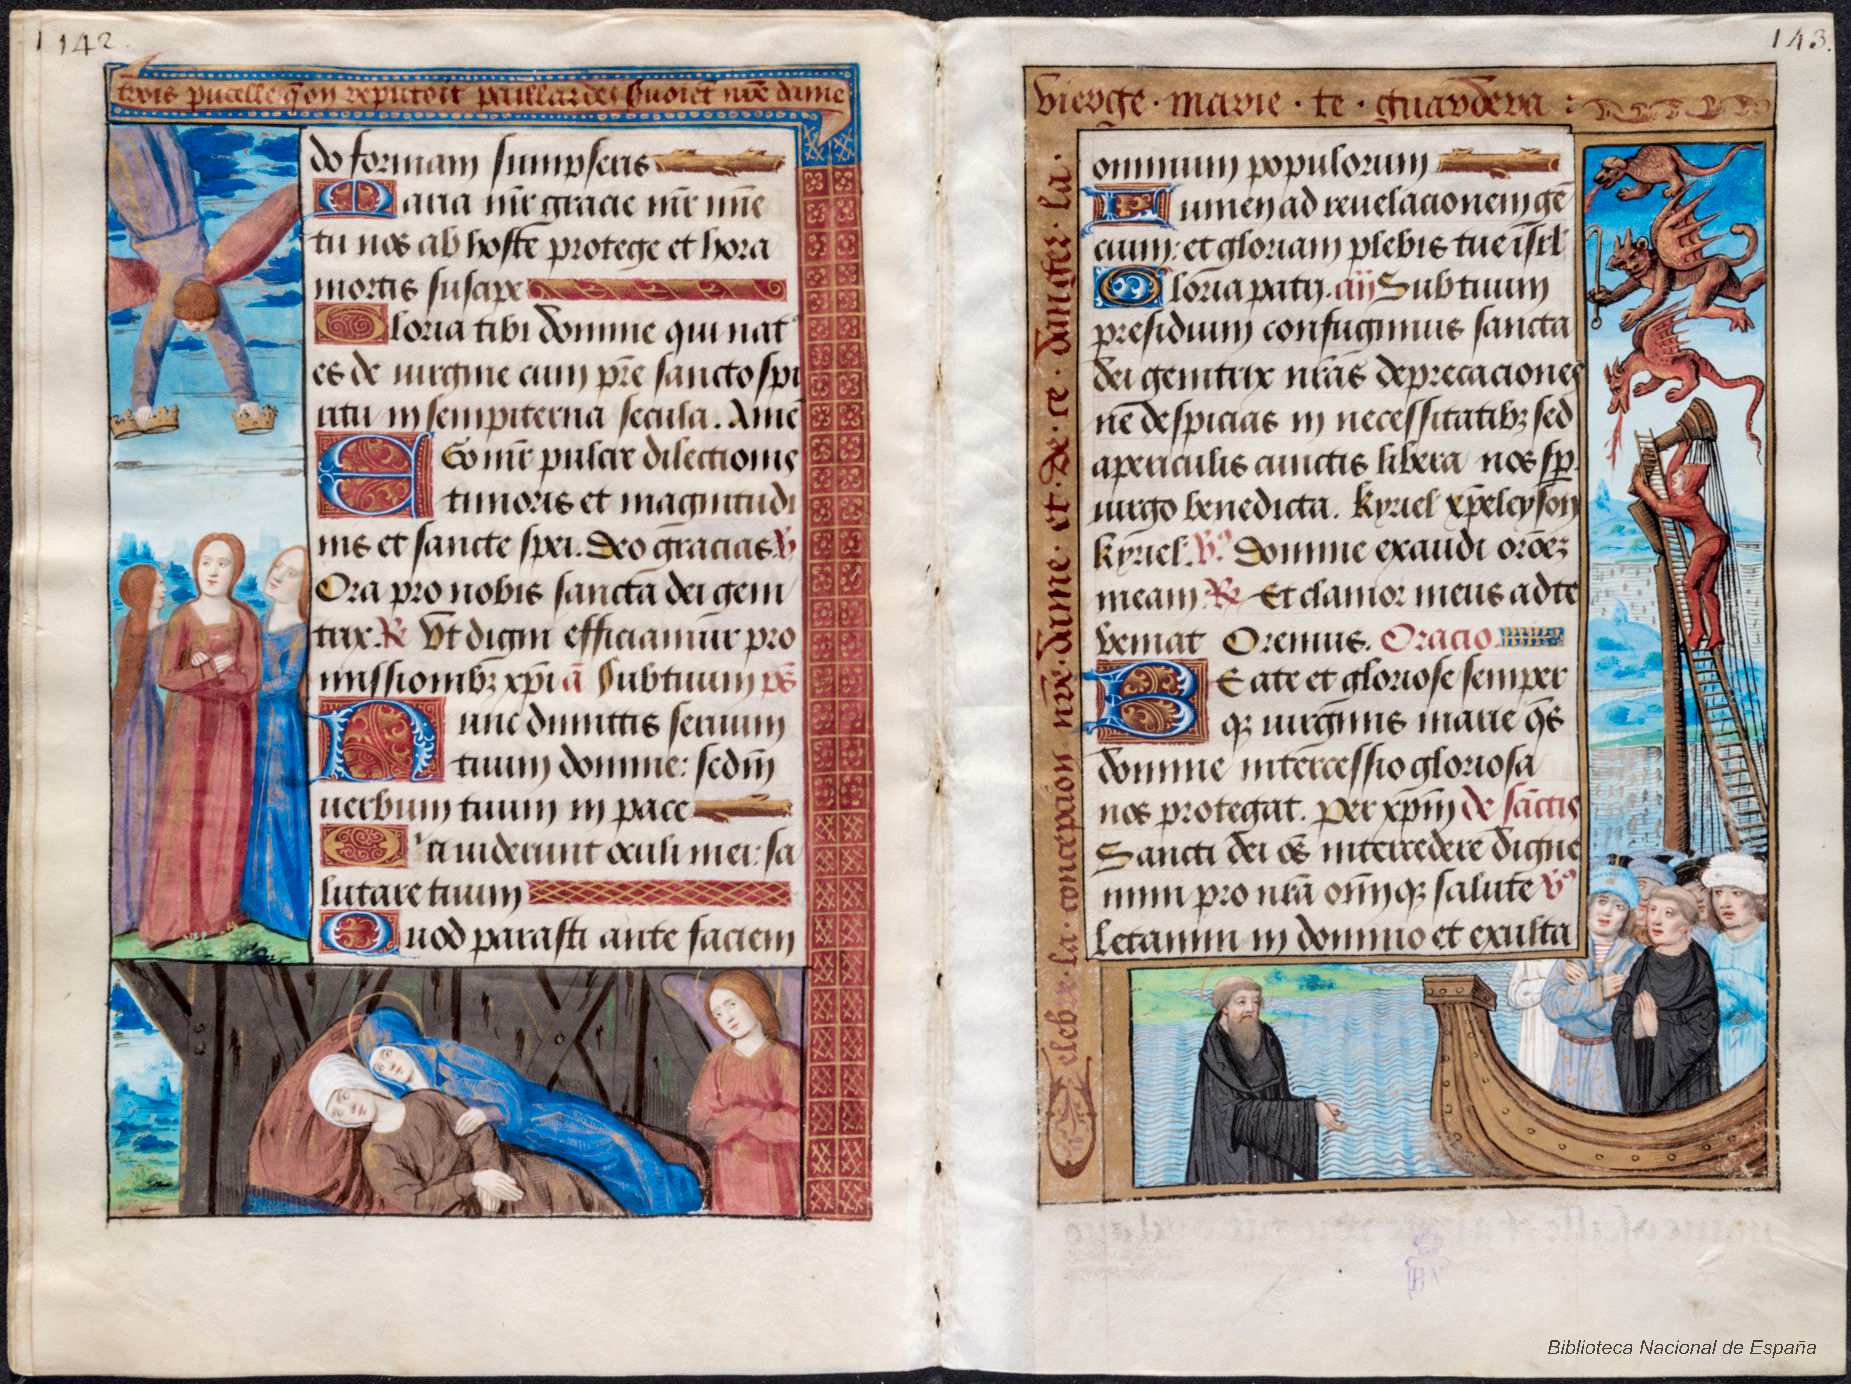 142.
trois pucelle q̄ on reputoit paillardes suoiēt nr̄e dame
do formam sumpseris
Maria mr̄ gracie mr̄ mīe
tu nos ab hostē protege et hora
mortis suscipe
Gloria tibi domine qui nat
es de uirgine cum pr̄e sancto spi
ritu in sempiterna secula. Amē
Ego mr̄ pulcre dilectionis
timoris et magnitudi
nis et sancte spei. Deo gracias. V
Ora pro nobis sancta dei geni
trix. R Vt digni efficiamur pro
missionibꝫ xp̄i ā Sub tuum ps̄
Nunc dimittis seruum
tuum domine: sedm̄
uerbum tuum in pace
Quia uiderunt oculi mei: sa
lutare tuum
Quod parasti ante faciem
143.
vierge · marie · te · guardera :
omnium populorum
Lumen ad reuelacionem gē
cium: et gloriam plebis tue isr̄l
Gloria patri. añ Sub tuum
presidium confugimus sancta
dei genitrix nr̄as deprecaciones
nē despicias in necessitatibꝫ sed
a periculis cunctis libera nos sp̄.
uirgo benedicta. Kyriel xp̄eleyson
kyriel. V̊ Domine exaudi or̄oeꝫ
meam R Et clamor meus ad te
veniat Oremus. Oracio
Beate et gloriose semper
qꝫ uirginis marie q̄s
domine intercessio gloriosa
nos protegat. Per xp̄m de sāctis
Sancti dei oēs intercedere digne
mini pro nr̄a om̄iqꝫ salute V̊
Letamini in domino et exulta
Celebrer · la · concepcion · nr̄e · dame · et · de · ce · danger · la ·
BN
Biblioteca Nacional de España